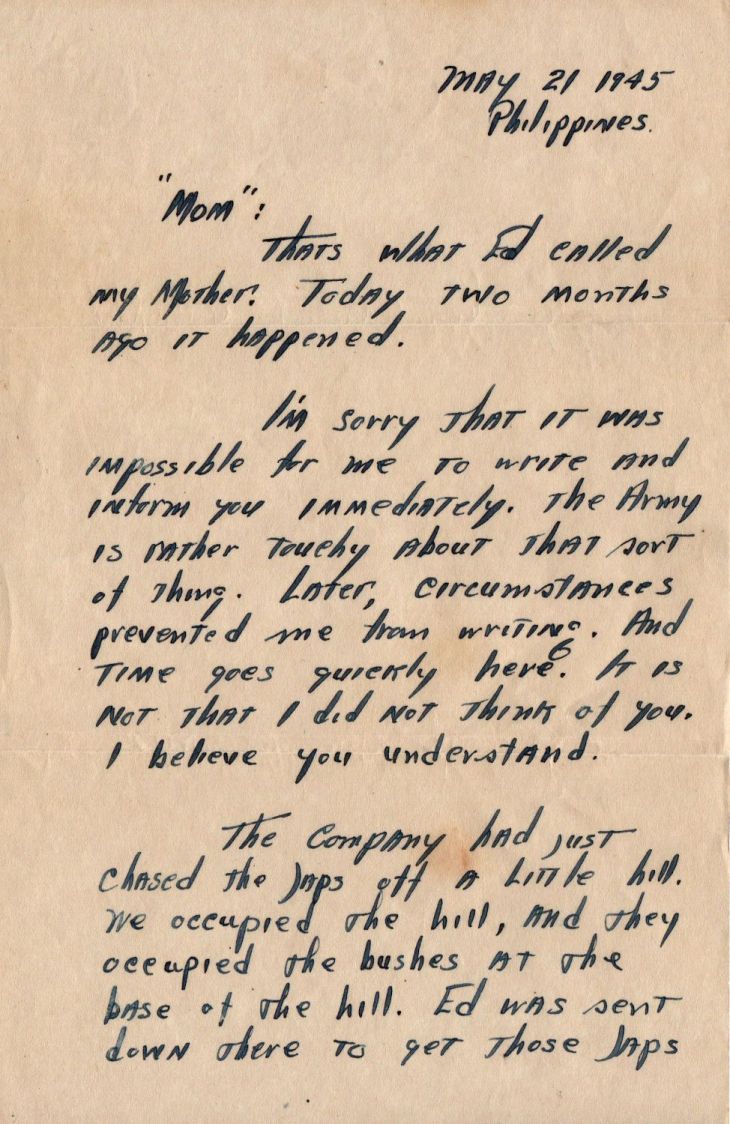 May 21 1945
Philippines.
"Mom":
Thats what Ed called
my Mother. Today two months
ago it happened.
I'm sorry that it was
impossible for me to write and
inform you immediately. The Army
is rather touchy about that sort
of thing. Later, circumstances
prevented me from writing. And
time goes quickly here. It is
not that I did not think of you.
I believe you understand.
The Company had just
chased the Japs off a little hill.
We occupied the hill, and they
occupied the bushes at the
base of the hill. Ed was sent
down there to get those Japs